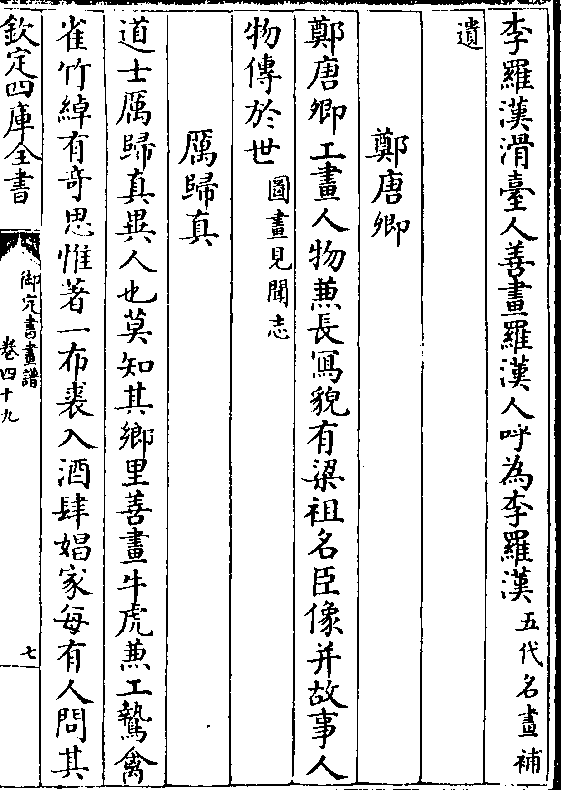 李羅漢滑臺人善畫羅漢人呼為李羅漢五代名畫補
遺
鄭唐卿
鄭唐卿工畫人物兼長冩貌有梁祖名臣像并故事人
物傳於世圖畫見聞志
厲歸真
道士厲歸真異人也莫知其鄉里善畫牛虎兼工鷙禽
雀竹綽有奇思惟著一布裘入酒肆娼家每有人問其
欽定四庫全書
御定書畫譜
卷四十九
七